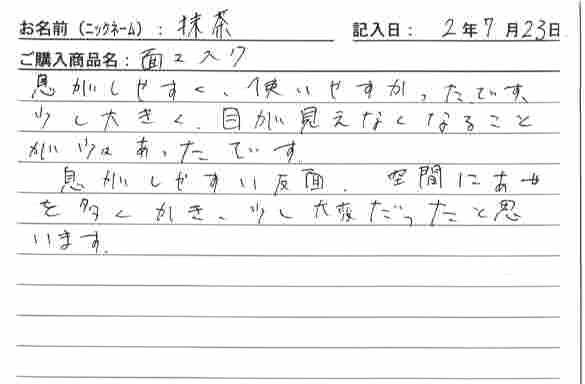 お名前（ニックネーム）：抹茶 記入日：2年7月23日
ご購入商品名：面マスク
息がしやすく、使いやすかったです。
少し大きく、目が見えなくなること
が少々あったです。
息がしやすい反面、空間にあせ
を多くかき、少し大変だったと思
います。